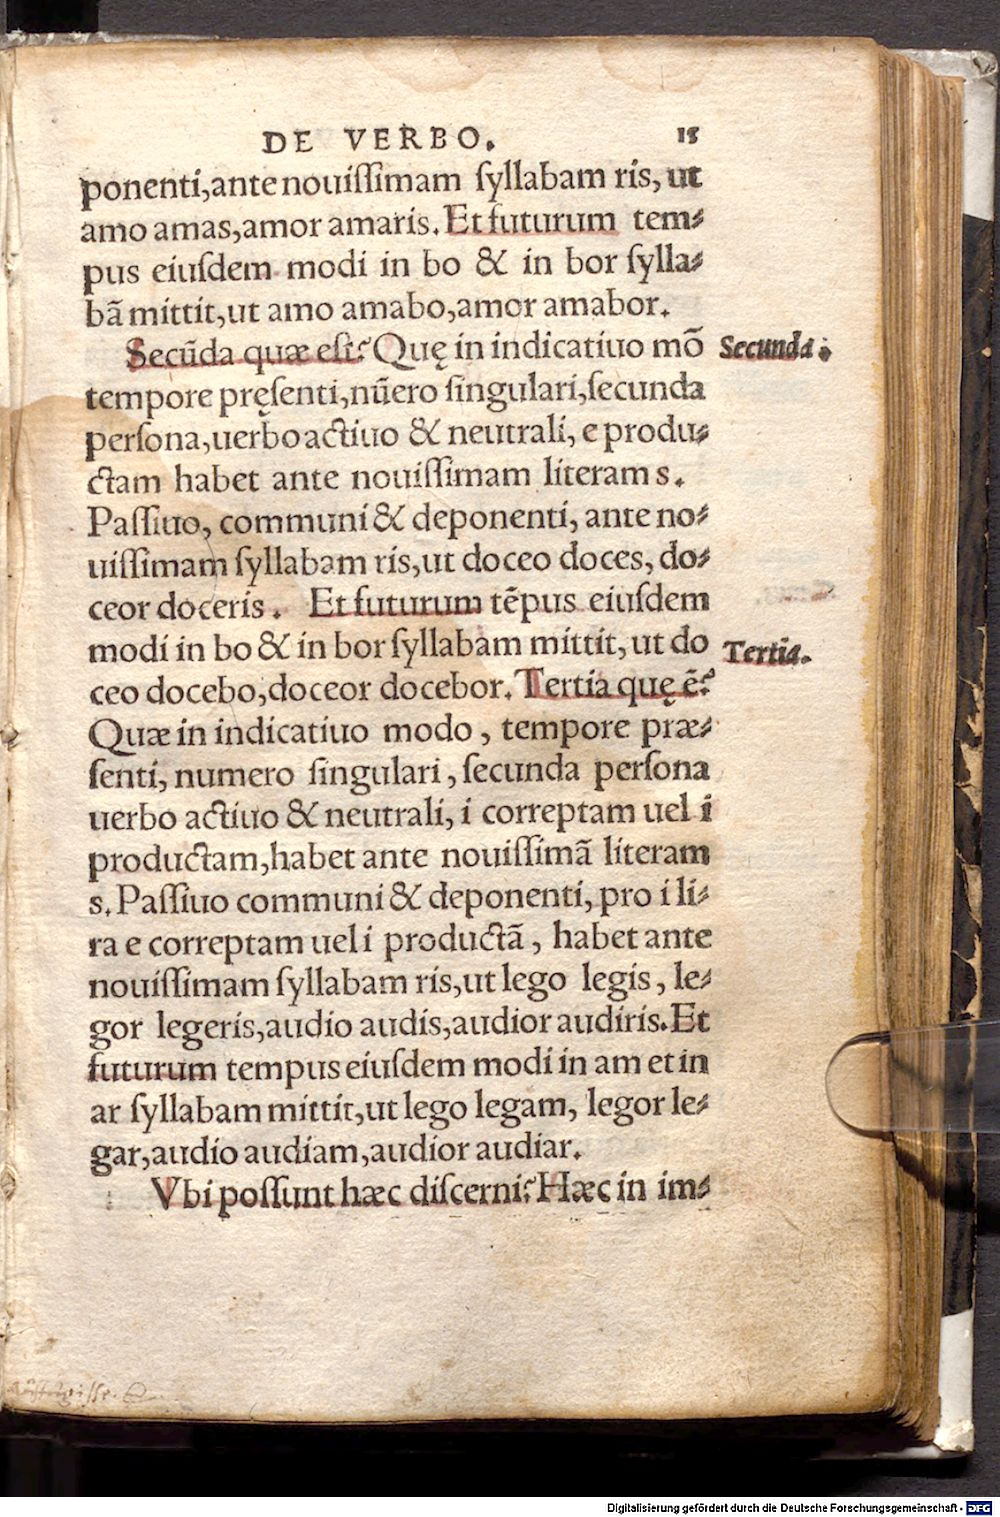 DE VERBO. 15
ponenti,ante nouiſſimam ſyllabam ris, ut
amo amas,amor amaris. Et futurum tem⸗
pus eiuſdem modi in bo & in bor ſylla⸗
bã mittit,ut amo amabo,amor amabor.
Secũda quæ eſt? Quę in indicatiuo mõ
Secunda.
tempore pręſenti,nũero ſingulari,ſecunda
perſona,uerbo actiuo & neutrali, e produ⸗
ctam habet ante nouiſſimam literam s.
Paſſiuo, communi & deponenti, ante no⸗
uiſſimam ſyllabam ris,ut doceo doces, do⸗
ceor doceris. Et futurum tẽpus eiuſdem
modi in bo & in bor ſyllabam mittit, ut do
Tertia.
ceo docebo,doceor docebor. Tertia quę ẽ?
Quæ in indicatiuo modo, tempore præ⸗
ſenti, numero ſingulari, ſecunda perſona
uerbo actiuo & neutrali, i correptam uel i
productam,habet ante nouiſſimã literam
s. Paſſiuo communi & deponenti, pro i li⸗
ra e correptam uel i productã, habet ante
nouiſſimam ſyllabam ris,ut lego legis, le⸗
gor legeris,audio audis,audior audiris. Et
futurum tempus eiuſdem modi in am et in
ar ſyllabam mittit,ut lego legam, legor le⸗
gar,audio audiam,audior audiar.
Vbi poſſunt hæc diſcerni? Hæc in im⸗
Digitalisierung gefördert durch die Deutsche Forschungsgemeinschaft - DFG